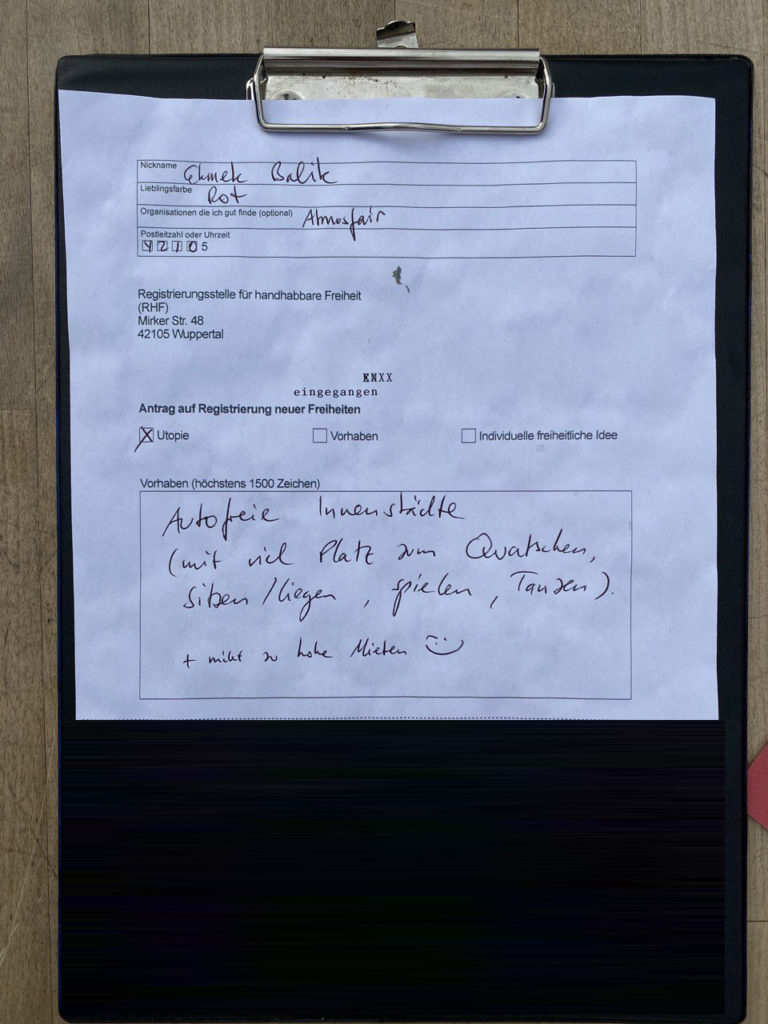 Nickname Ekmek Balik
Lieblingsfarbe Rot
Organisationen die ich gut finde (optional) Atmosfair
Postleitzahl oder Uhrzeit
42105
Registrierungsstelle für handhabbare Freiheit
(RHF)
Mirker Str. 48
42105 Wuppertal
ENXX
eingegangen
Antrag auf Registrierung neuer Freiheiten
Utopie Vorhaben Individuelle freiheitliche Idee
Vorhaben (höchstens 1500 Zeichen)
Autofreie Innenstädte
(mit viel Platz zum Quatschen,
sitzen / liegen, spielen, Tanzen).
+ nicht zu hohe Mieten